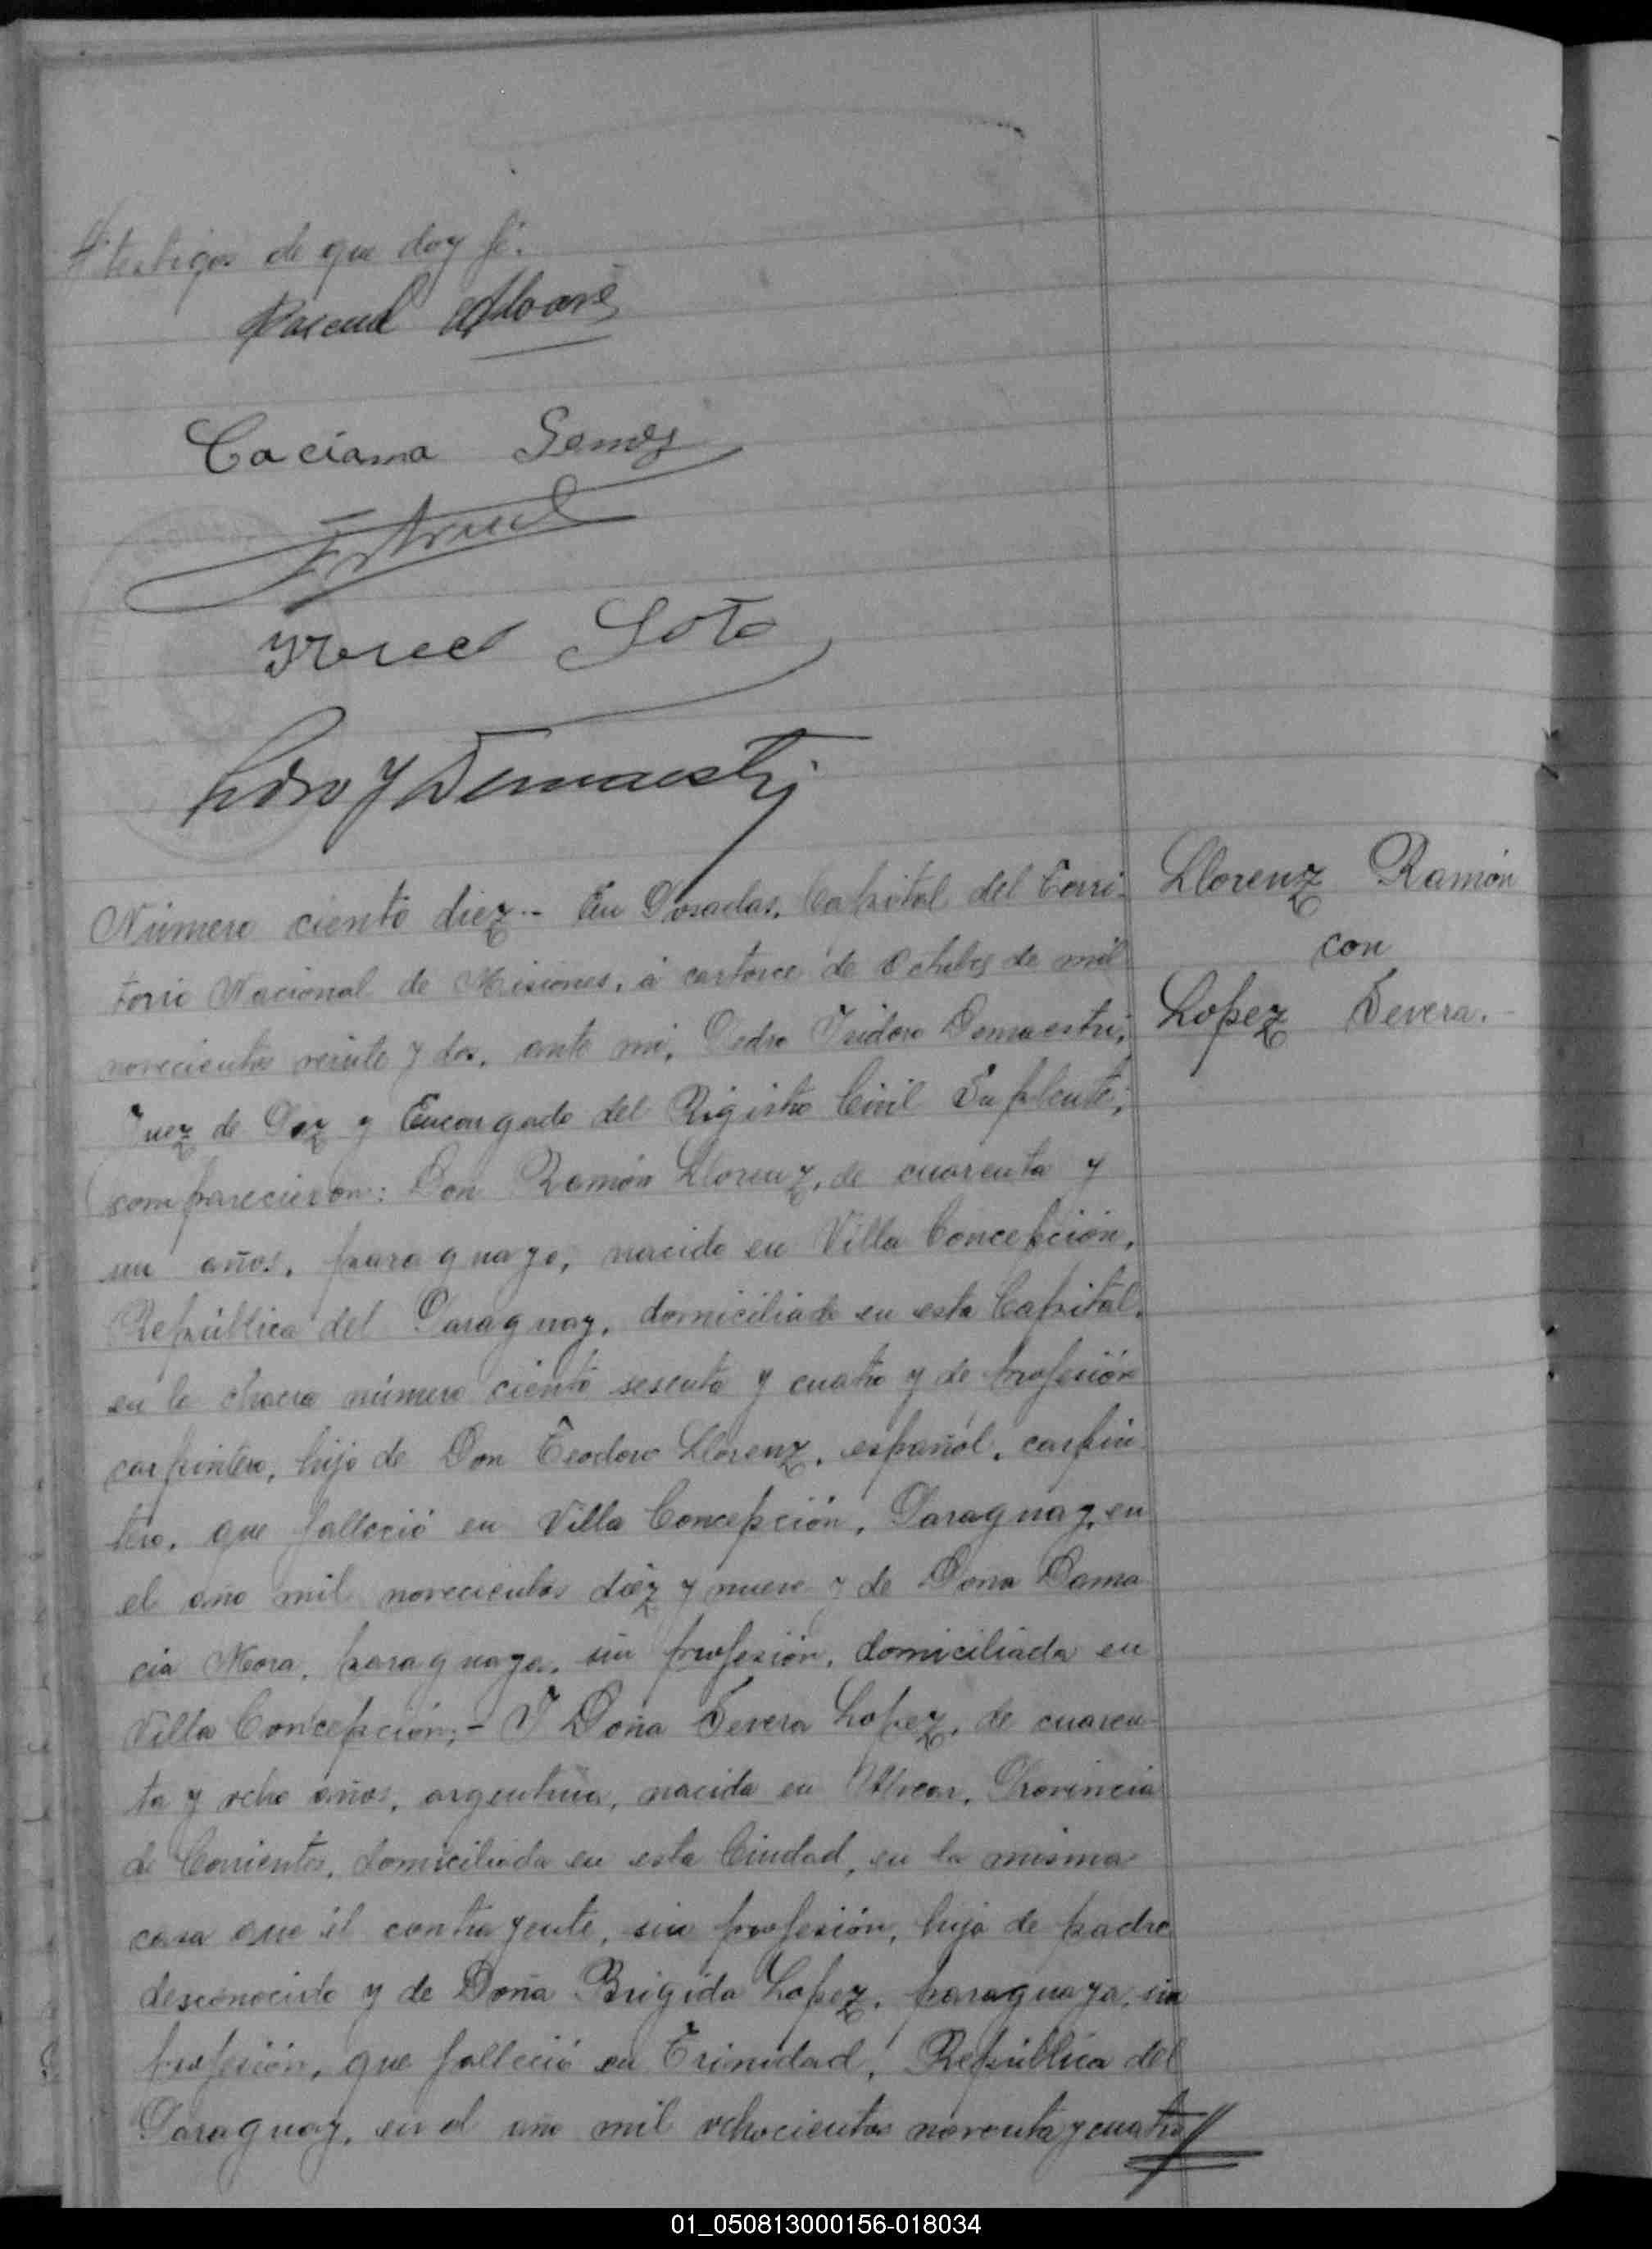 testigos de que doy fé.
Caciana Gomez
Soto
Pedro Y Demaestri
Número ciento diez.- En Posadas, Capital del Terri-
torio Nacional de Misiones, á cartorce de Octubre de mil
novecientos veinte y dos, ante mi, Pedro Isidoro Demaestri,
Juez de Paz y Encargado del Rigistro Civil Suplente,
comparecieron: Don Ramón Llorenz, de cuarenta y
un años, paraguayo, nacido en Villa Concepción,
República del Paraguay, domiciliado en esta Capital,
en la chacra número ciento sesenta y cuatro y de profesión
carpintero, hijo de Don Teodoro Llorenz, español, carpin-
tero, que falleció en Villa Concepción, Paraguay, en
el año mil novecientos diéz y nueve y de Dona Dama
cia Mora, paraguaya, sin profesión, domiciliada en
Villa Concepción;- Y Doña Severa Lopez, de cuaren-
ta y ocho años, argentina, nacida en Alvear, Provincia
de Corrientes, domiciliada en esta Ciudad, en la misma
casa que el contrayente, sin profesión, hija de padre
desconocido y de Doña Brigida Lopez, paraguaya, sin
profesión, que falleció en Trinidad, República del
Paraguay, en el año mil ochocientos noventa y cuatro
Llorenz Ramón
con
Lopez Severa.-
01_050813000156-018034